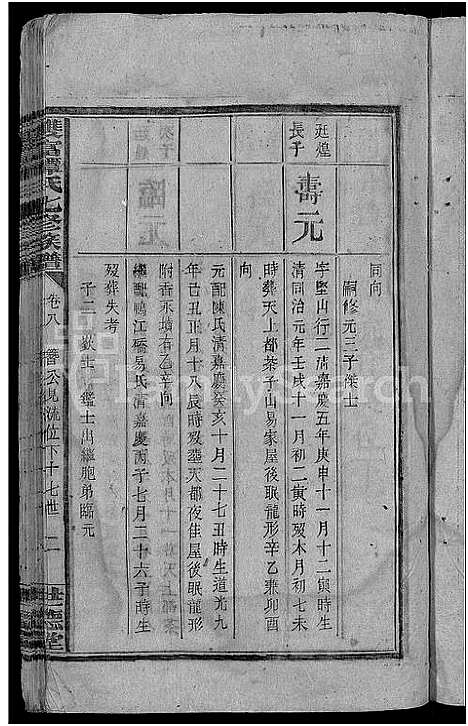 同向
嗣修元三子傑士
廷煌長子
壽元
字堅山行二清嘉慶五年庚申十一月十二寅時生
清同治元年壬戌十一月初二寅時歿本月初七未
時葬天上都茶子山易家屋後眠龍形辛乙兼卯酉
向
元配陳氏清嘉慶癸亥十月二十七丑時生道光九
年己丑正月十八辰時歿葬天都夜佳屋後眠龍形
附香禾墳右乙辛向
繼配鴨江橋易氏清嘉慶丙子七月二十六子時生
歿葬失考
子二 鑑士出繼胞弟臨元
氏七修族譜
卷八
公見洗位下十七世
二
堂